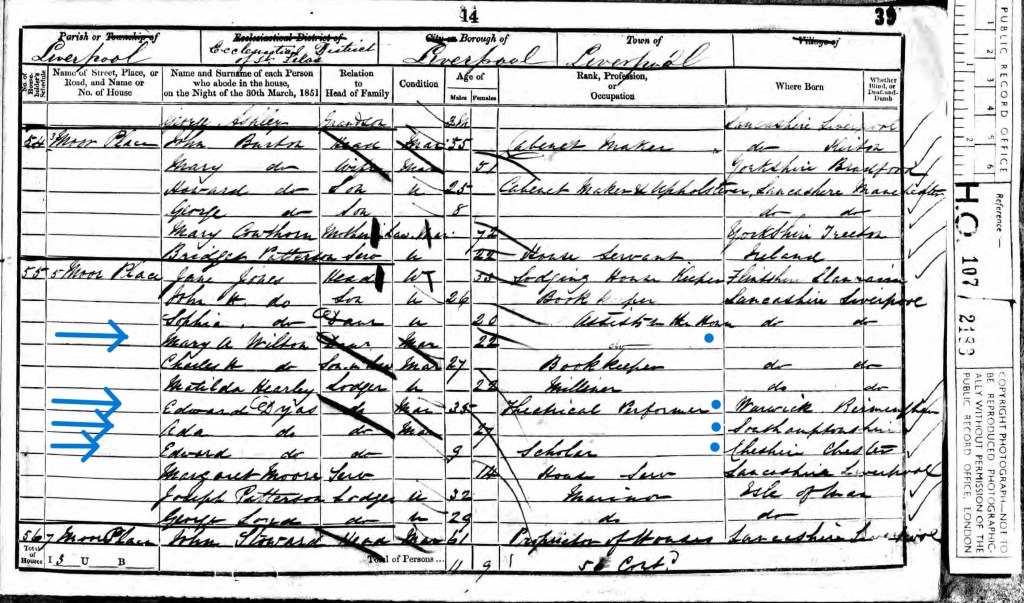 14
39
Parish or Township of
Ecclesiastical District of
City or Borough of
Town of
Village of
Liverpool
Ecclesiastical District of St. Silas
Liverpool
Liverpool
No. of Householder's Schedule
Name of Street, Place, or Road, and Name or No. of House
Name and Surname of each Person who abode in the house, on the Night of the 30th March, 1851
Relation to Head of Family
Condition
Age of
Males
Females
Rank, Profession, or Occupation
Where Born
Whether Blind, or Deaf-and-Dumb
George Ashley Grandson Lancashire Liverpool
54 3 Moor Place John Burton Head Mar 55 Cabinet Maker do
Mary do Wife Mar 51 Yorkshire Bradford
do Son U 25 Cabinet Maker & Upholsterer Lancashire Manchester
George do Son 8 do do
Mary Mother in Law 72 Yorkshire Treeton
Bridget Patterson Serv U 22 House Servant Ireland
55 5 Moor Place Jane Jones Head Lodging House Keeper Flintshire
John H do Son U 26 Book Lancashire Liverpool
Sophia do Daur U 20 do do
Mary A Wilson Daur Mar 22
Charles H do Son in law Mar 27 Bookkeeper do do
Matilda Lodger U 22 Milliner do do
Edward Dyas do Mar 35 Theatrical Performer Warwick Birmingham
Ada do do Mar 27 Southamptonshire
Edward do do 9 Scholar Cheshire Chester
Margaret Moore Serv 14 House Serv Lancashire Liverpool
Joseph Patterson Lodger U 32 Mariner Isle of Man
George do U 29 do do
56 7 Moor Place John Head Mar 61 Proprietor of Houses Lancashire Liverpool
Total of Houses
I 3 U B
Total of Persons...
11 9
PUBLIC RECORD OFFICE
1 2 3 4 5 6
Reference:-
H.O. 107/2183
COPYRIGHT PHOTOGRAPH-NOT TO BE REPRODUCED PHOTOGRAPHICALLY WITHOUT PERMISSION OF THE PUBLIC RECORD OFFICE, LONDON